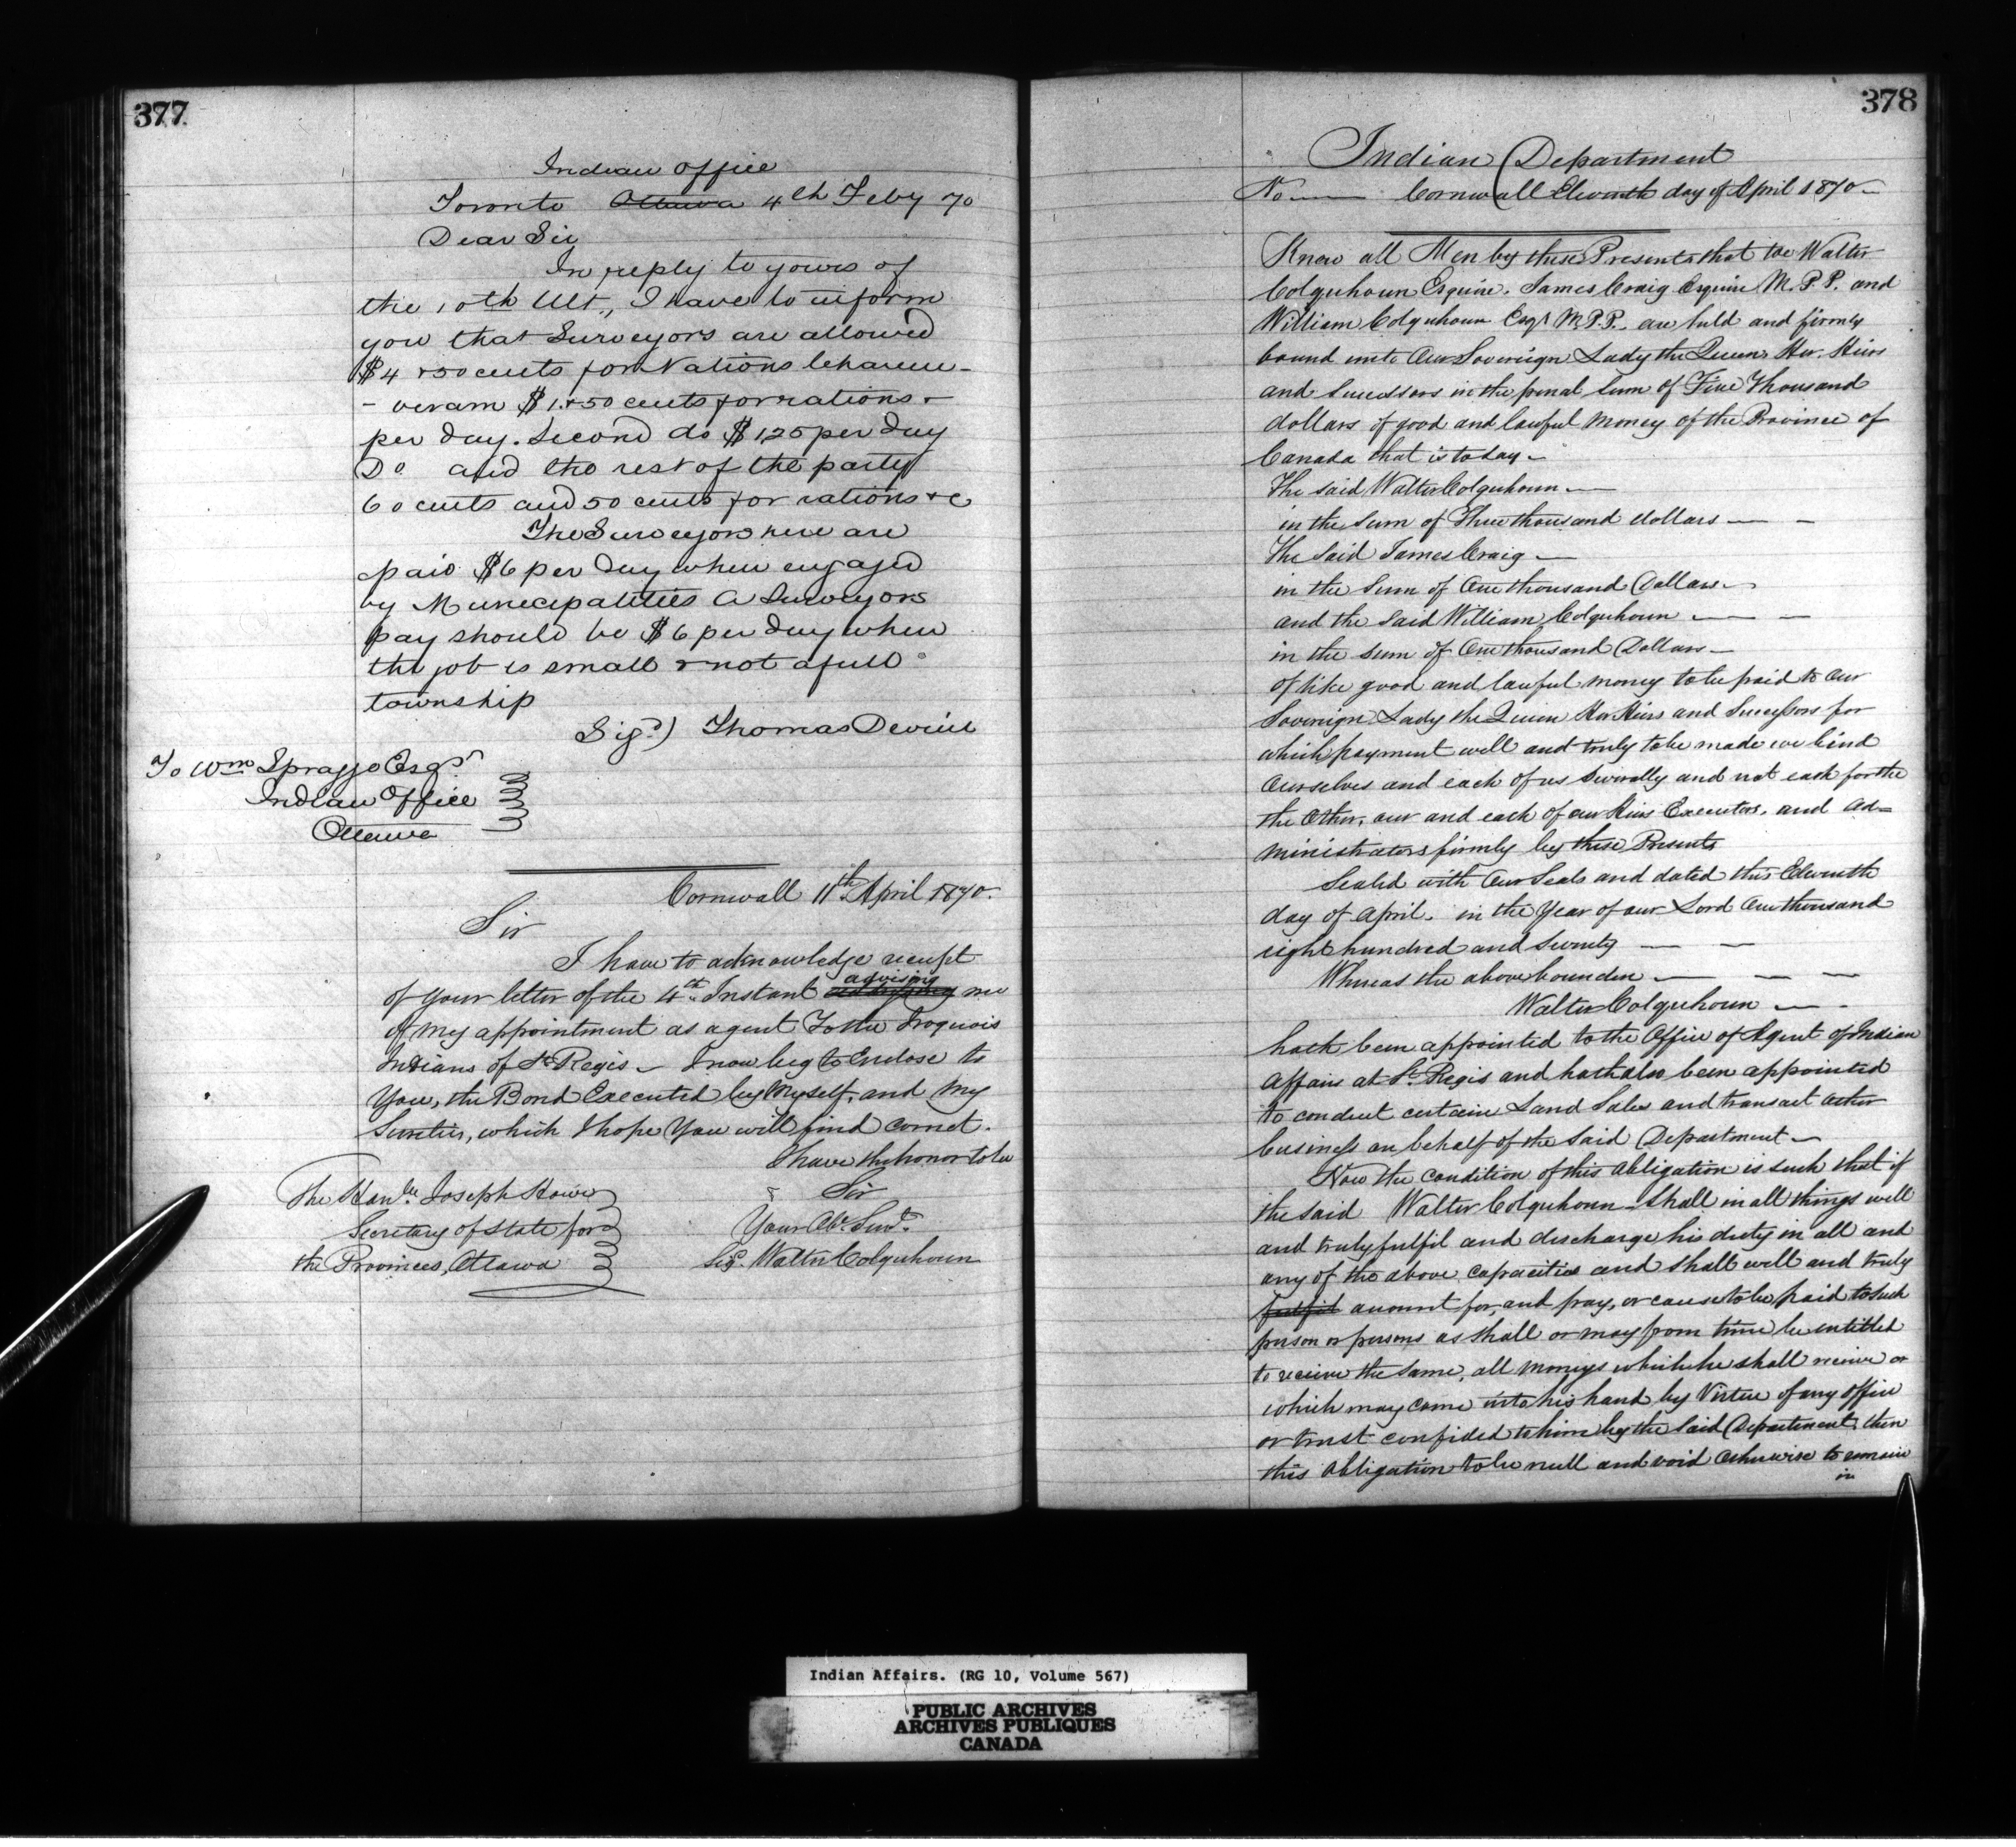 377
Indian Office
Toronto Ottawa 4th Feby 70
Dear Sir
In reply to yours of
the 10th Ult., I have to inform
you that Surveyors are allowed
$4 & 50 cents for Nations
$1 & 50 cents for rations &
per day. Second do $1,25 per day
Do and the rest of the party
60 cents and 50 cents for rations &c
The Surveyors here are
paid $6 per day when engaged
by Municipalities a Surveyors
pay should be $6 per day when
the job is small & not a full
township
Sigd) Thomas Devine
To Wm Spragge Esqr
Indian Office
Ottawa
Cornwall 11th April 1870.
Sir
I have to acknowledge receipt
of your letter of the 4th Instant advising me
of my appointment as agent To the Iroquois
Indians of St Regis - I now beg to Enclose to
You, the Bond Executed by Myself, and My
Sureties, which I hope You will find correct.
I have the honor to be
The Honble Joseph Howe
Sir
Secretary of State for
Your Obt. Servt.
the Provinces, Ottawa
Sigd. Walter Colquhoun
378
Indian Department
No — Cornwall Eleventh day of April 1870 —
Know all Men by these Presents that we Walter
Colquhoun Esquire. James Craig Esquire M.P.P. and
William Colquhoun Esqr M.P.P. are held and firmly
bound unto Our Sovereign Lady the Queen, Her Heirs
and Successors in the penal Sum of Five Thousand
dollars of good and lawful Money of the Province of
Canada that is to day —
The said Walter Colquhoun —
in the Sum of Three thousand dollars — —
The Said James Craig —
in the Sum of One thousand Dollars —
and the Said William Colquhoun — —
in the Sum of One thousand Dollars —
of like good and lawful money to be paid to Our
Sovereign Lady the Queen Her Heirs and Successors for
which payment well and truly to be made we bind
Ourselves and each of us Severally and not each for the
the Other, our and each of our Heirs Executors, and Ad=
ministrators firmly by these Presents
Sealed with Our Seals and dated this Eleventh
day of April. in the Year of our Lord One thousand
eight hundred and Seventy — —
Whereas the above bounden — — —
Walter Colquhoun — -
hath been appointed to the Office of Agent of Indian
Affairs at St. Regis and hath also been appointed
to conduct certain Land Sales and transact other
business on behalf of the Said Department —
Now the condition of this Obligation is such that if
the said Walter Colquhoun Shall in all things well
and truly fulfil and discharge his duty in all and
any of the above capacities and Shall well and truly
fulfil account for, and pay, or cause to be paid to such
person or persons as Shall or may from time be entitled
to receive the Same, all moneys which he shall receive or
which may come into his hand by Virtue of any office
or trust confided to him by the Said Department, then
this Obligation to be null and void Otherwise to remain
in
Indian Affairs. (RG 10, Volume 567)
PUBLIC ARCHIVES
ARCHIVES PUBLIQUES
CANADA